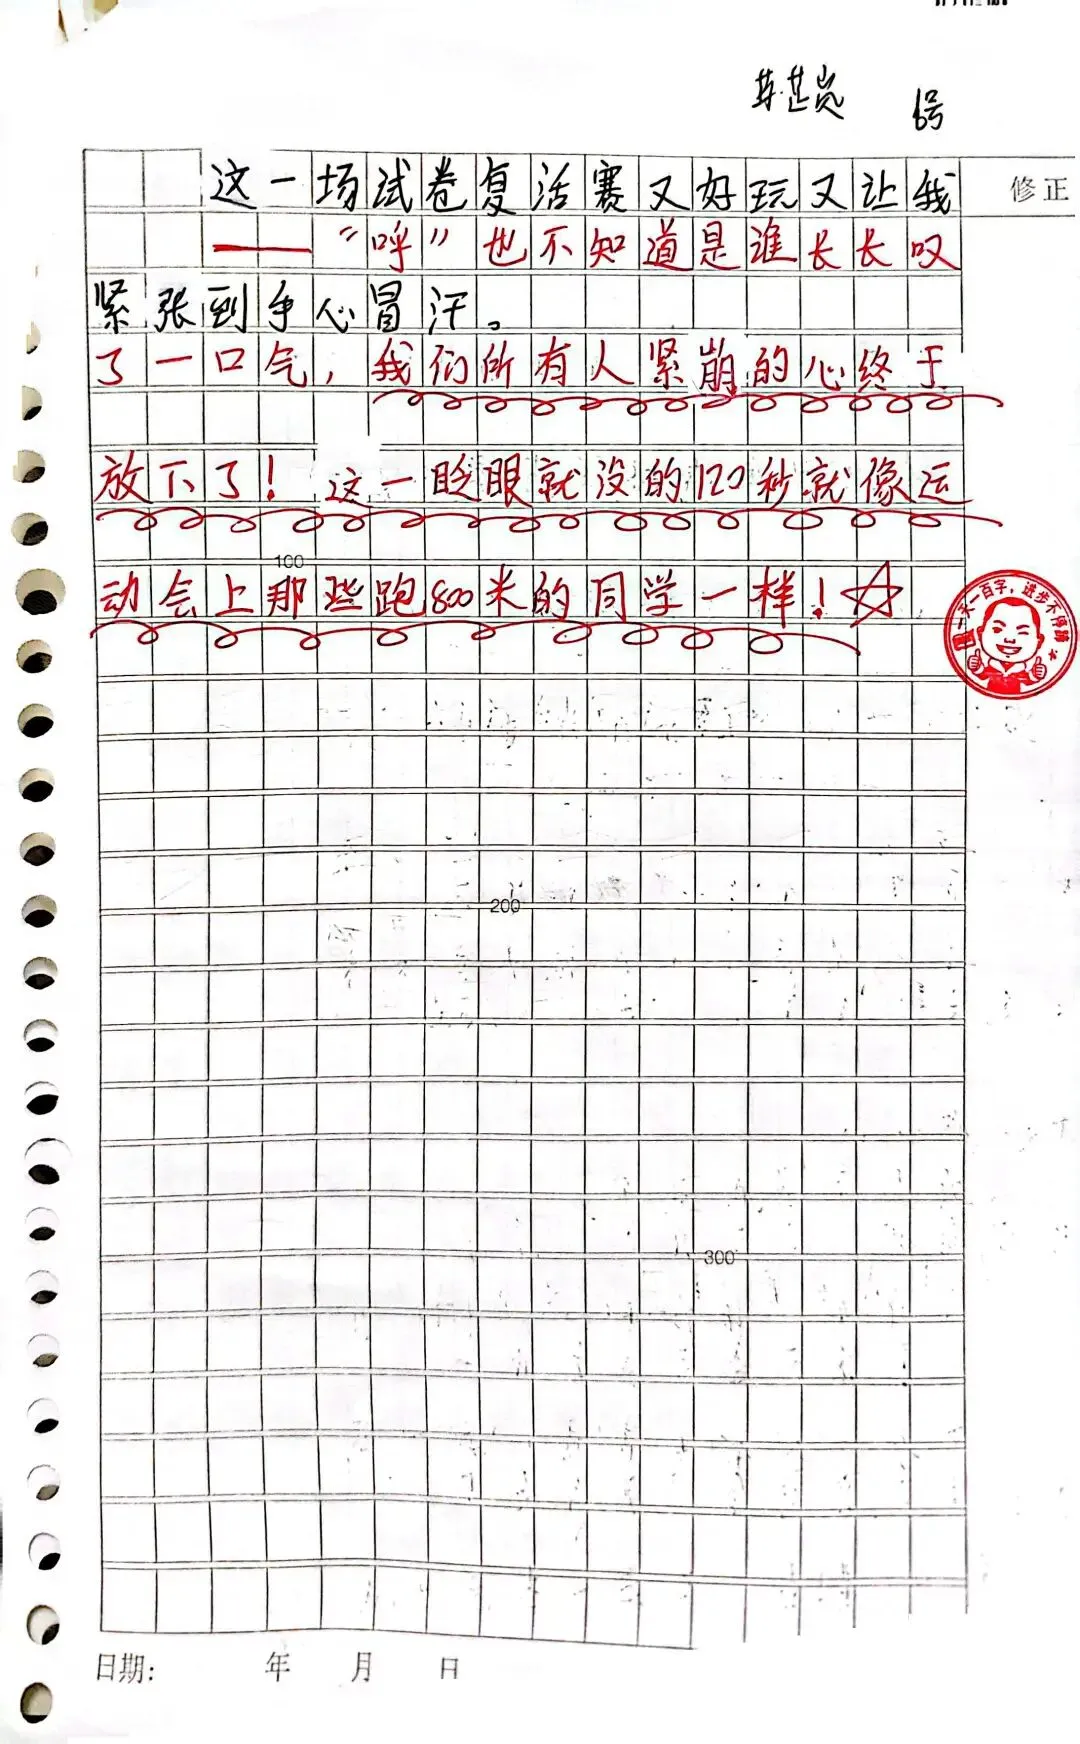 6号
这一场试卷复活赛又好玩又让我
修正
——“呼”也不知道是谁长长叹
紧张到手心冒汗。
了一口气,我们所有人紧崩的心终于
放下了!这一眨眼就没的120秒就像运
100
动会上那些跑800米的同学一样!
一天一百字,进步不停蹄
200
300
日期: 年 月 日